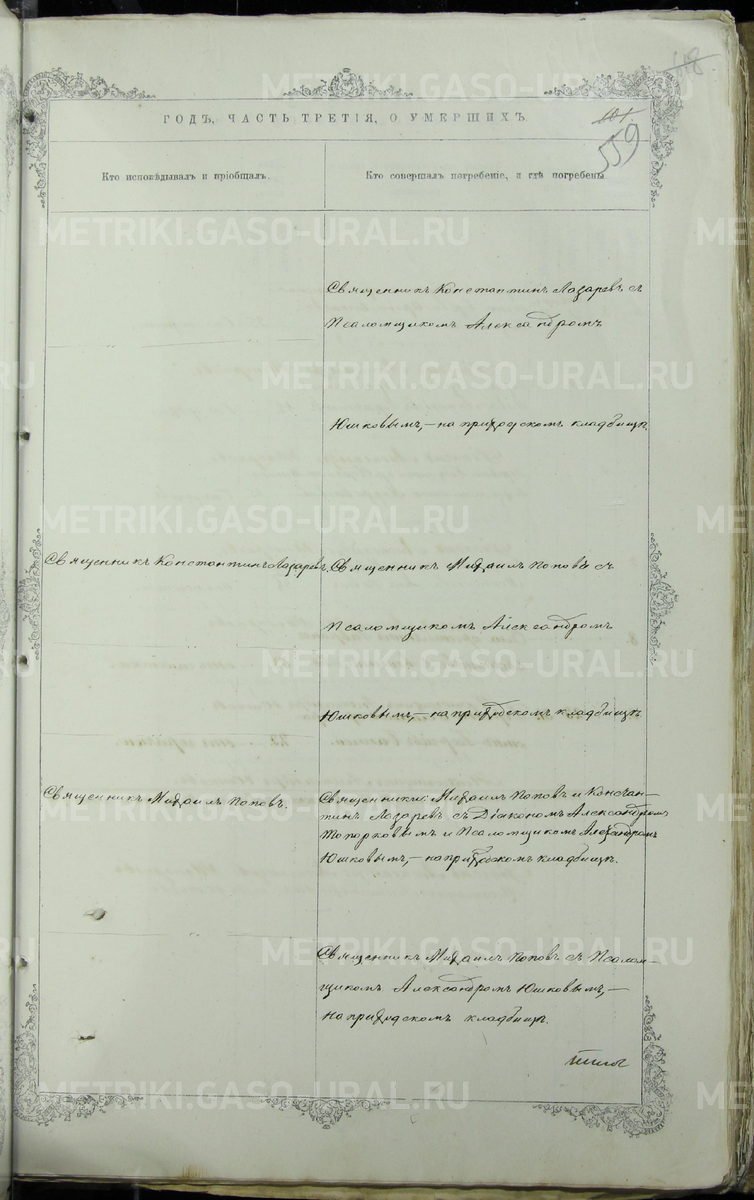 118
ГОДЪ, ЧАСТЬ ТРЕТІЯ, О УМЕРШИХЪ.
101
559
Кто исповѣдывалъ и пріобщалъ.
Кто совершалъ погребеніе, и гдѣ погребены.
Священникъ Константинъ Лазаревъ съ
Псаломщикомъ Александромъ
Юшковымъ,—на приходскомъ кладбищѣ.
Священникъ Константинъ Лазаревъ.
Священникъ Михаилъ Поповъ съ
Псаломщикомъ Александромъ
Юшковымъ,—на приходскомъ кладбищѣ
Священникъ Михаилъ Поповъ.
Священники: Михаилъ Поповъ и Констан-
тинъ Лазаревъ съ Діакономъ Александромъ
Топорковымъ и Псаломщикомъ Александромъ
Юшковымъ,—на приходскомъ кладбищѣ.
Священникъ Михаилъ Поповъ съ Псалом-
щикомъ Александромъ Юшковымъ,—
на приходскомъ кладбищѣ.
METRIKI.GASO-URAL.RU